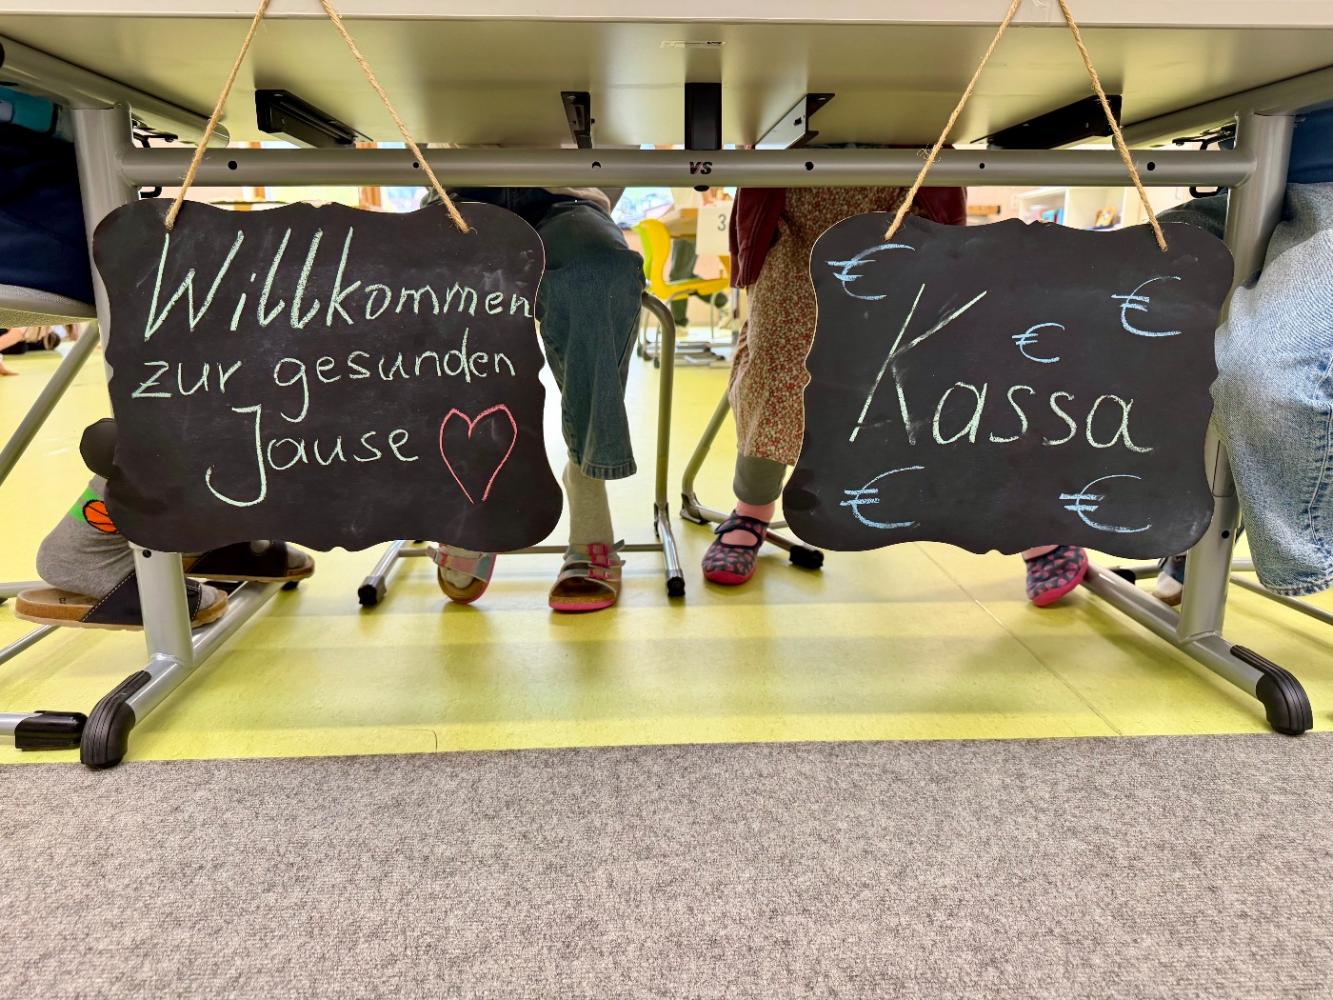 Willkommen
zur gesunden
Jause
€
€
€
Kassa
€
€
VS
3